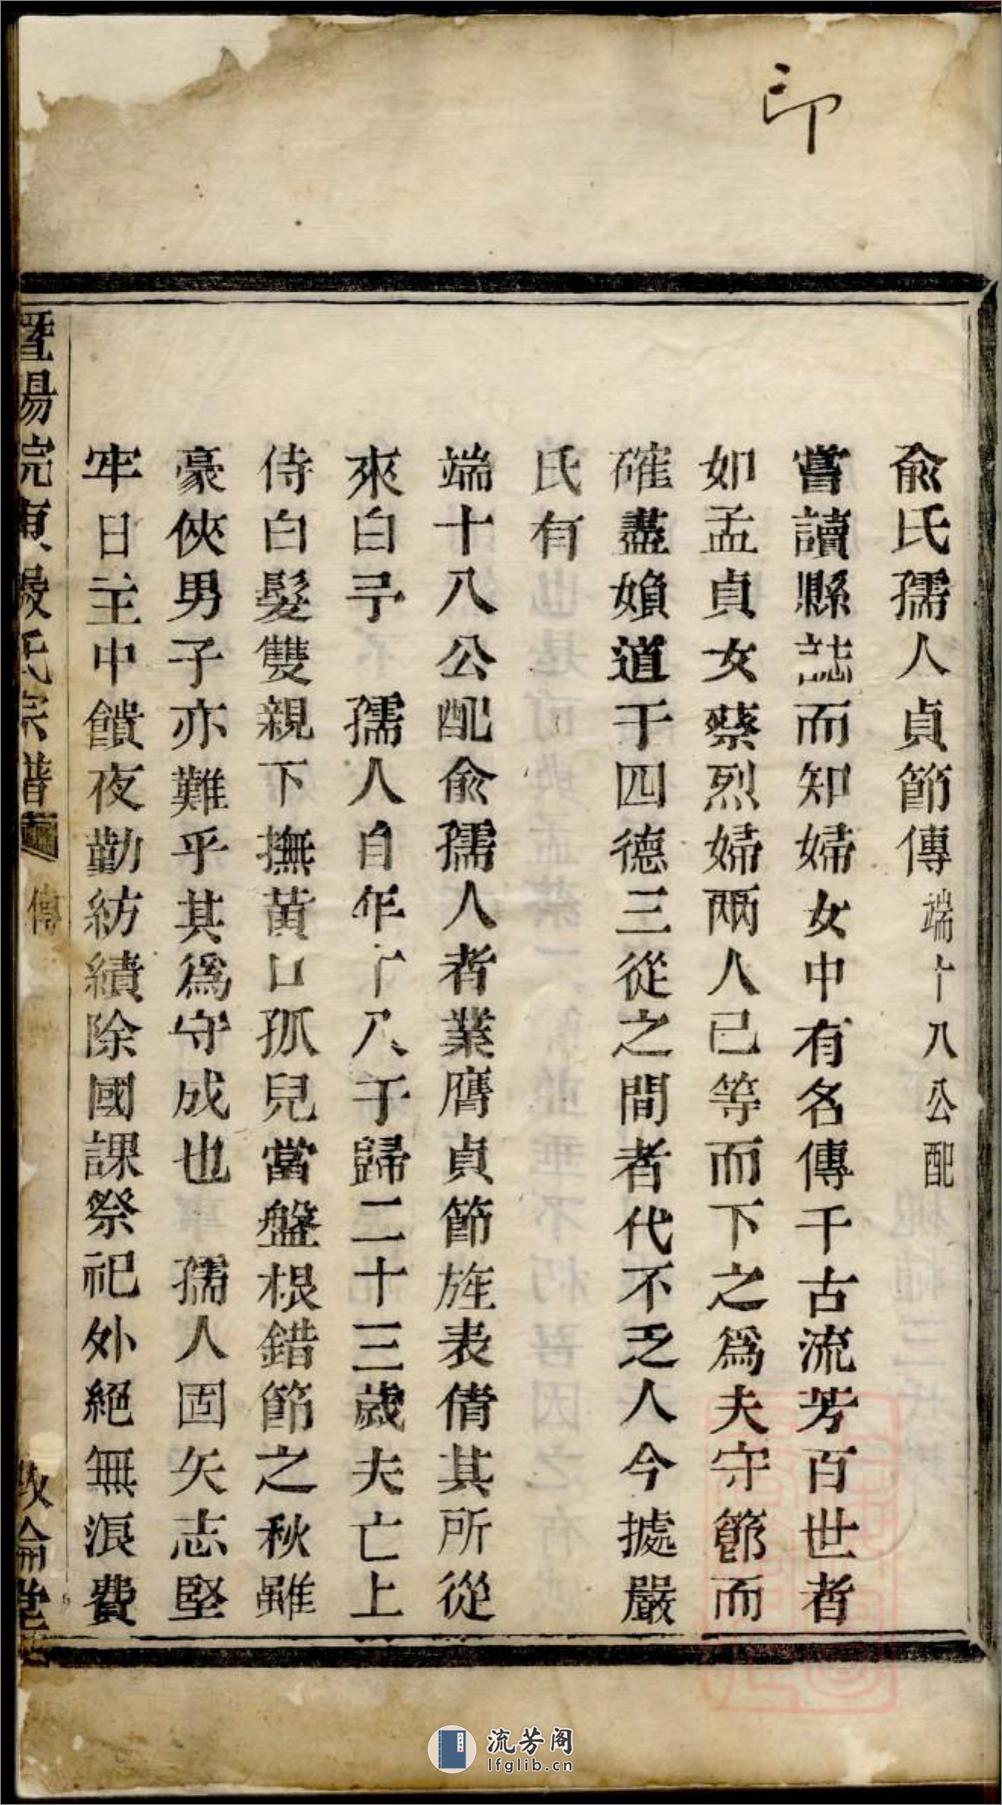 印
俞氏孺人貞節傳端十八公配
嘗讀縣誌而知婦女中有名傳千古流芳百世者
如孟貞女蔡烈婦兩人已等而下之爲夫守節而
確盡嬪道于四德三從之間者代不乏人今據嚴
氏有
端十八公配俞孺人者業膺貞節旌表倩其所從
來白予 孺人自年十八于歸二十三歲夫亡上
侍白髮雙親下撫黃口孤兒當盤根錯節之秋雖
豪俠男子亦難乎其爲守成也 孺人固矢志堅
牢日主中饋夜勤紡績除國課祭祀外絕無浪費
暨陽浣東嚴氏宗譜 傳 敦倫堂
流芳阁
lfglib.cn